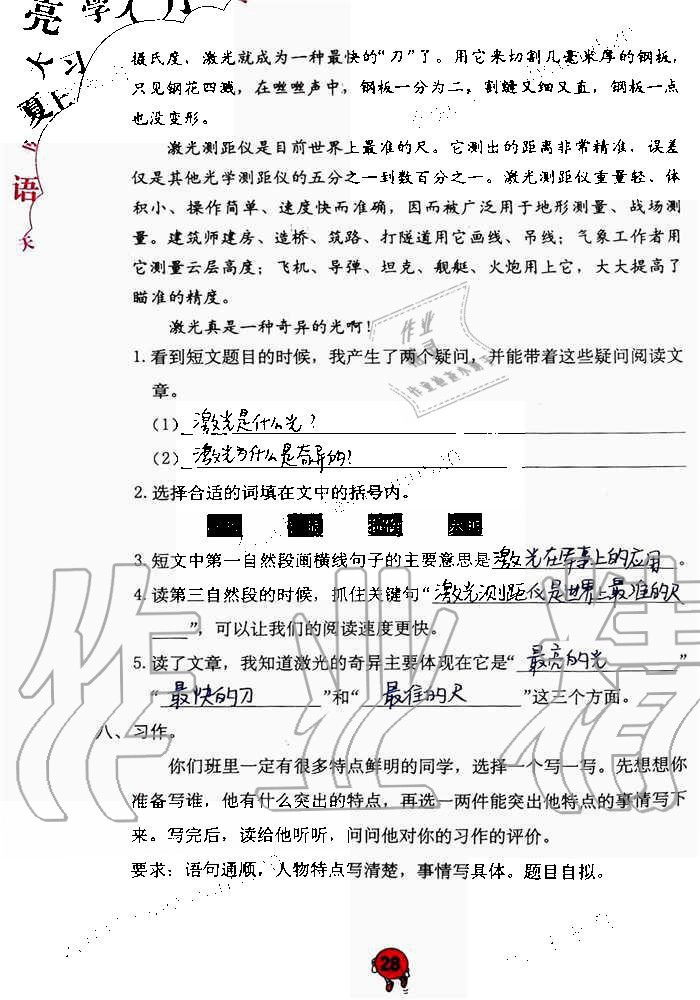 亮 学 人
夏 上 习
语
天
摄氏度，激光就成为一种最快的“刀”了。用它来切割几毫米厚的钢板，
只见钢花四溅，在咝咝声中，钢板一分为二，割缝又细又直，钢板一点
也没变形。
激光测距仪是目前世界上最准的尺。它测出的距离非常精准，误差
仅是其他光学测距仪的五分之一到数百分之一。激光测距仪重量轻、体
积小、操作简单、速度快而准确，因而被广泛用于地形测量、战场测
量。建筑师建房、造桥、筑路、打隧道用它画线、吊线；气象工作者用
它测量云层高度；飞机、导弹、坦克、舰艇、火炮用上它，大大提高了
瞄准的精度。
激光真是一种奇异的光啊！
1. 看到短文题目的时候，我产生了两个疑问，并能带着这些疑问阅读文
章。
（1）激光是什么光？
（2）激光为什么是奇异的？
2. 选择合适的词填在文中的括号内。
3. 短文中第一自然段画横线句子的主要意思是激光在军事上的应用。
4. 读第三自然段的时候，抓住关键句“激光测距仪是世界上最准的尺
”，可以让我们的阅读速度更快。
5. 读了文章，我知道激光的奇异主要体现在它是“最亮的光”
“最快的刀”和“最准的尺”这三个方面。
八、习作。
你们班里一定有很多特点鲜明的同学，选择一个写一写。先想想你
准备写谁，他有什么突出的特点，再选一两件能突出他特点的事情写下
来。写完后，读给他听听，问问他对你的习作的评价。
要求：语句通顺，人物特点写清楚，事情写具体。题目自拟。
28
作业精